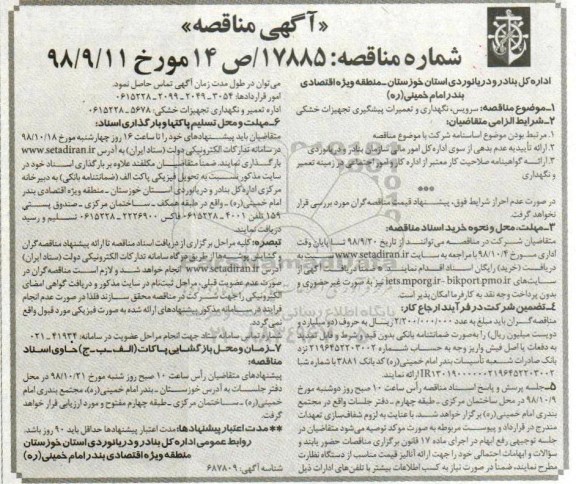 «آگهی مناقصه»
شماره مناقصه: ۱۷۸۸۵/ص ۱۴ مورخ ۹۸/۹/۱۱
اداره کل بنادر و دریانوردی استان خوزستان - منطقه ویژه اقتصادی
بندر امام خمینی (ره)
۱- موضوع مناقصه: سرویس، نگهداری و تعمیرات پیشگیری تجهیزات خشکی
۲- شرایط الزامی متقاضیان:
۱. مرتبط بودن موضوع اساسنامه شرکت با موضوع مناقصه
۲. ارائه تأییدیه عدم بدهی از سوی اداره کل امور مالی سازمان بنادر و دریانوردی
۳. ارائه گواهینامه صلاحیت کار معتبر از اداره کار و امور اجتماعی در زمینه تعمیر
و نگهداری
***
در صورت عدم احراز شرایط فوق، پیشنهاد قیمت مناقصه گران مورد بررسی قرار
نخواهد گرفت.
۳- مهلت، محل و نحوه خرید اسناد مناقصه:
متقاضیان شرکت در مناقصه می‌توانند از تاریخ ۹۸/۹/۲۰ تا پایان وقت
اداری مورخ ۹۸/۱۰/۴ با مراجعه به سایت www.setadiran.ir نسبت به
دریافت (خرید) رایگان اسناد اقدام نمایند.
سایت‌های iets.mporg.ir - bikport.pmo.ir نیز به صورت غیرحضوری و
بدون پرداخت وجه نقد به کارفرما امکان پذیر است.
۴- تضمین شرکت در فرآیند ارجاع کار:
مناقصه گران باید مبلغ به عدد ۲/۲۰۰/۰۰۰/۰۰۰ ریال به حروف (دو میلیارد و
دویست میلیون ریال) را به صورت ضمانتنامه بانکی بدون قید و شرط و قابل تمدید
به دفعات یا اصل فیش واریز وجه به حساب شماره ۲۱۹۶۴۵۲۲۰۳۰۰۲ نزد
بانک صادرات شعبه تأسیسات بندر امام خمینی (ره) کد بانک ۳۸۸۱ با شماره شبا
۵- جلسه پرسش و پاسخ اسناد مناقصه رأس ساعت ۱۰ صبح روز دوشنبه مورخ
۹۸/۱۰/۹ در محل ساختمان مرکزی - طبقه چهارم - دفتر جلسات واقع در مجتمع
بندری امام خمینی (ره) برگزار خواهد شد. با عنایت به لزوم شفاف‌سازی تعهدات
مندرج در قرارداد و پیوست مربوطه به صورت موکد توصیه می‌شود متقاضیان در
جلسه توجیهی رفع ابهام در اجرای ماده ۱۷ قانون برگزاری مناقصات حضور یابند و
سؤالات و ابهامات احتمالی خود را جهت ارائه آنالیز قیمت مناسب از دستگاه نظارت
مطرح نمایند، ضمناً در صورت نیاز به کسب اطلاعات بیشتر با تلفن‌های ادارات ذیل
می‌توان در طول مدت زمان آگهی تماس حاصل نمود.
امور قراردادها: ۳۰۵۴ - ۲۰۴۹ - ۲۰۹۹ - ۰۶۱۵۲۲۸
اداره تعمیر و نگهداری تجهیزات خشکی: ۵۶۷۸ - ۰۶۱۵۲۲۸
۶- مهلت و محل تسلیم پاکتها و بارگذاری اسناد:
متقاضیان باید پیشنهادهای خود را تا ساعت ۱۶ روز چهارشنبه مورخ ۹۸/۱۰/۱۸
در سامانه تدارکات الکترونیکی دولت (ستاد ایران) به آدرس www.setadiran.ir
بارگذاری نمایند، ضمناً متقاضیان مکلفند علاوه بر بارگذاری اسناد خود در
سایت مذکور نسبت به تحویل فیزیکی پاکت الف (ضمانتنامه بانکی) به دبیرخانه
مرکزی اداره کل بنادر و دریانوردی استان خوزستان - منطقه ویژه اقتصادی بندر
امام خمینی (ره) واقع در طبقه همکف - ساختمان مرکزی - صندوق پستی
۱۵۹ تلفن ۴۰۰۱ - ۰۶۱۵۲۲۸ فاکس ۲۲۲۶۹۰۰ - ۰۶۱۵۲۲۸ تسلیم و رسید
دریافت نمایند.
تبصره: کلیه مراحل برگزاری از دریافت اسناد مناقصه تا ارائه پیشنهاد مناقصه گران
و گشایش پاکت‌ها از طریق درگاه سامانه تدارکات الکترونیکی دولت (ستاد ایران)
به آدرس www.setadiran.ir انجام خواهد شد و لازم است مناقصه گران در
صورت عدم عضویت قبلی، مراحل ثبت‌نام در سایت مذکور و دریافت گواهی امضای
الکترونیکی را جهت شرکت در مناقصه محقق سازند فلذا در صورت عدم انجام
فرایند در سامانه مذکور پیشنهادهای ارائه شده به صورت فیزیکی مورد قبول واقع
نمی‌گردد.
سامانه ستاد جهت انجام مراحل عضویت در سامانه: ۴۱۹۳۴-۰۲۱
۷- زمان و محل بازگشایی پاکات (الف - ب - ج) حاوی اسناد
مناقصه:
پیشنهادهای متقاضیان رأس ساعت ۱۰ صبح روز شنبه مورخ ۹۸/۱۰/۲۱ در محل
دفتر جلسات به آدرس خوزستان - بندر امام خمینی (ره)، مجتمع بندری امام
خمینی (ره) - ساختمان مرکزی - طبقه چهارم مفتوح و مورد ارزیابی قرار خواهد
گرفت.
** مدت اعتبار پیشنهادها: مدت اعتبار پیشنهادها حداقل باید ۹۰ روز باشد.
روابط عمومی اداره کل بنادر و دریانوردی استان خوزستان
منطقه ویژه اقتصادی بندر امام خمینی (ره)
شناسه آگهی: ۶۸۷۸۰۹